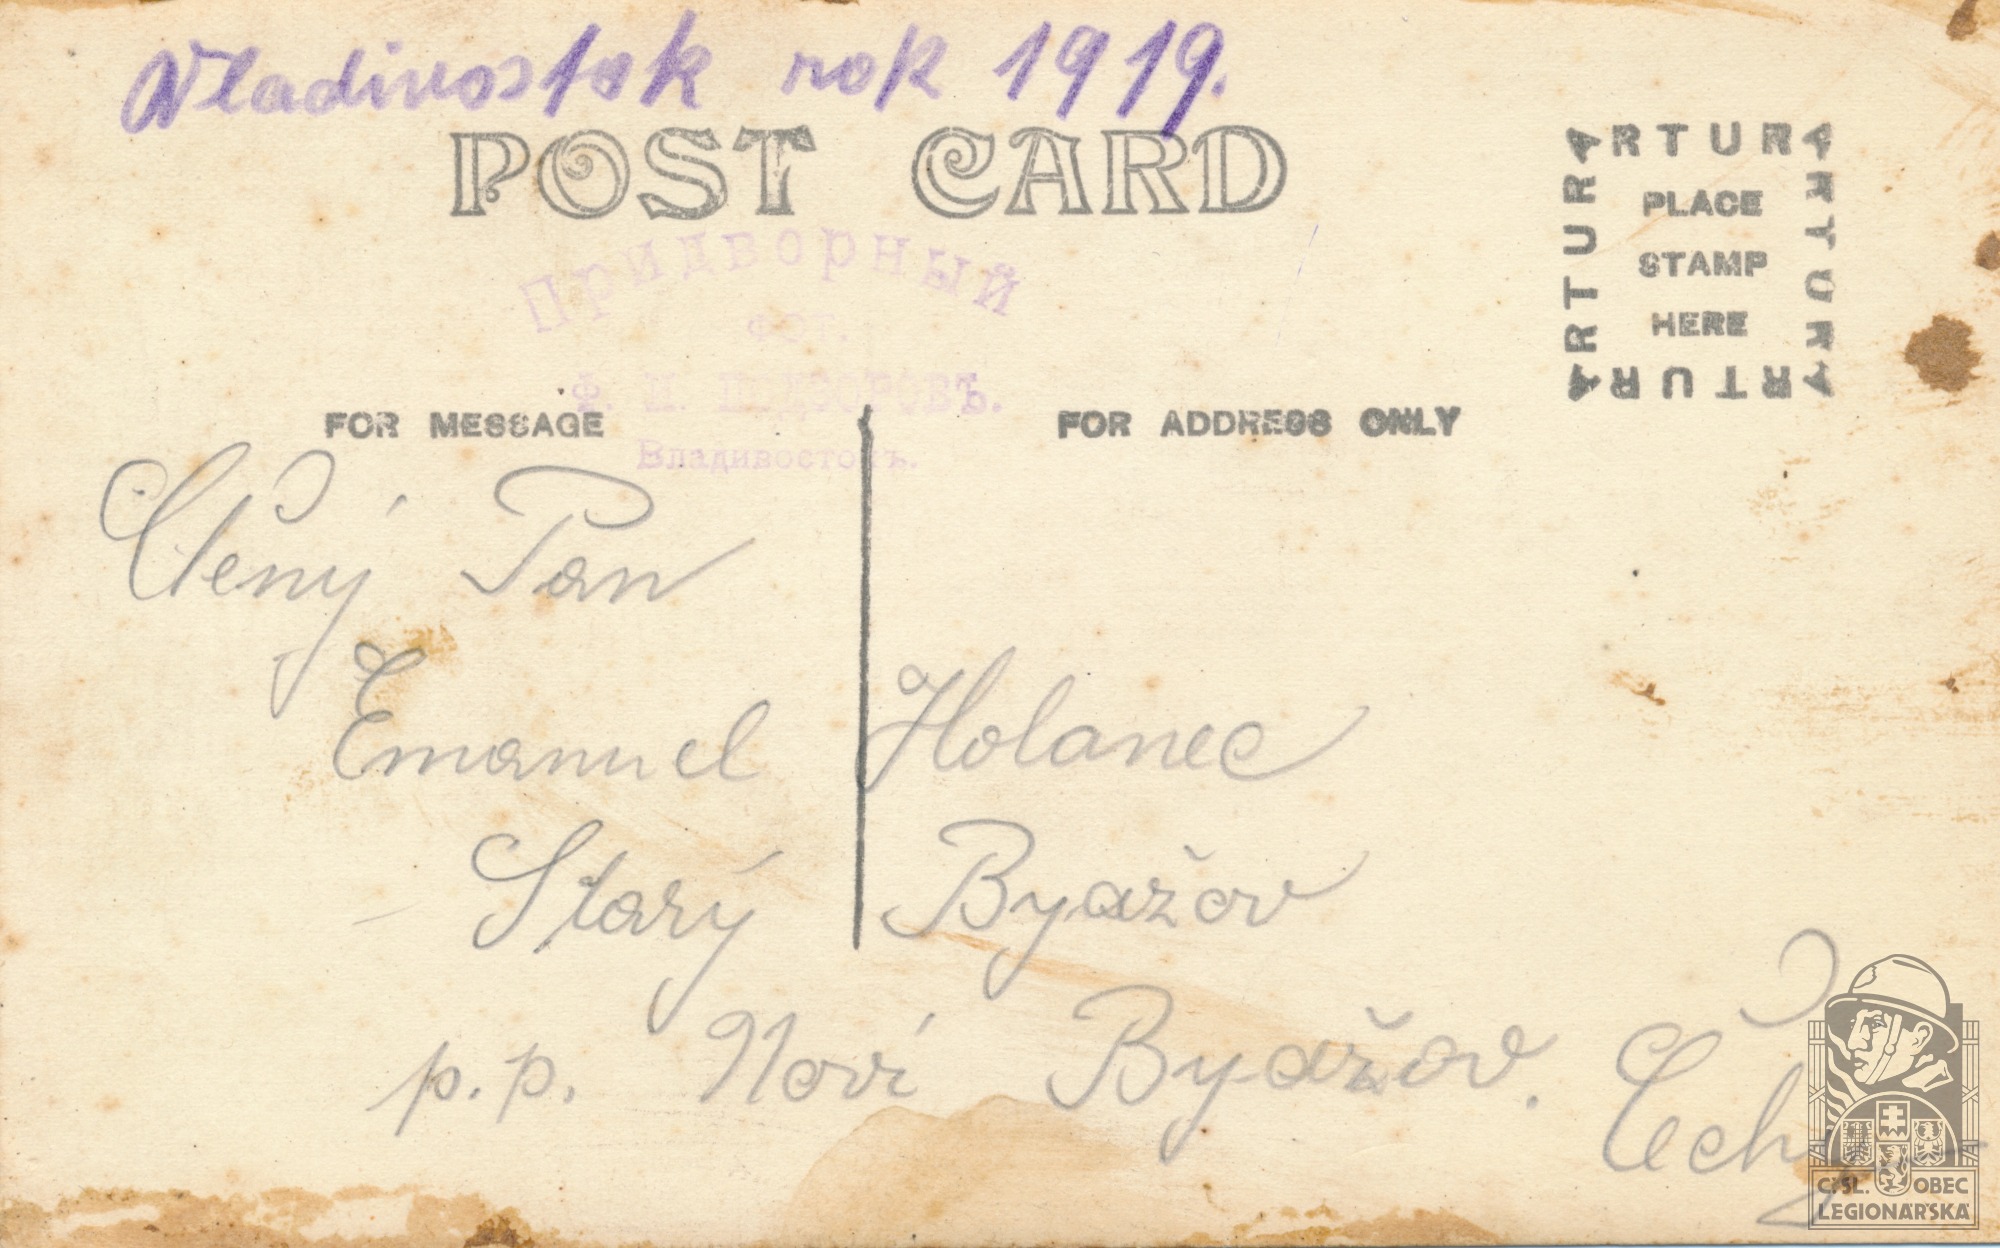 Vladivostok rok 1919.
POST CARD
ARTURA
ARTURA
ARTURA
ARTURA
PLACE
STAMP
HERE
Придворный
фот.
Владивостокъ.
FOR MESSAGE
FOR ADDRESS ONLY
Ctěný Pan
Emanuel Holanec
Starý Byažov
p.p. Noví Byažov. Čechy
ČSL. OBEC
LEGIONÁŘSKÁ